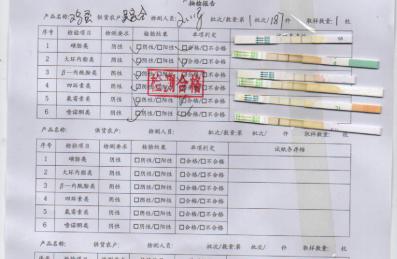 抽检报告
产品名称: 鸡蛋 供货农户: 检测人员: 批次/数量:第 1 批次/ 187 件 取样数量: 1 枚
序号 检验项目 检测要求 检验结果 单项判定
1 磺胺类 阴性 ☑阴性/□阳性 ☑合格/□不合格
2 大环内酯类 阴性 ☑阴性/□阳性 ☑合格/□不合格
3 β—内酰胺类 阴性 ☑阴性/□阳性 ☑合格/□不合格
4 四环素类 阴性 ☑阴性/□阳性 ☑合格/□不合格
5 氟霉素类 阴性 ☑阴性/□阳性 ☑合格/□不合格
6 喹诺酮类 阴性 ☑阴性/□阳性 ☑合格/□不合格
检测合格
产品名称: 供货农户: 检测人员: 批次/数量:第 批次/ 件 取样数量: 枚
序号 检验项目 检测要求 检验结果 单项判定 试纸条存档
1 磺胺类 阴性 □阴性/□阳性 □合格/□不合格
2 大环内酯类 阴性 □阴性/□阳性 □合格/□不合格
3 β—内酰胺类 阴性 □阴性/□阳性 □合格/□不合格
4 四环素类 阴性 □阴性/□阳性 □合格/□不合格
5 氟霉素类 阴性 □阴性/□阳性 □合格/□不合格
6 喹诺酮类 阴性 □阴性/□阳性 □合格/□不合格
产品名称: 供货农户: 检测人员: 批次/数量:第 批次/ 件 取样数量: 枚